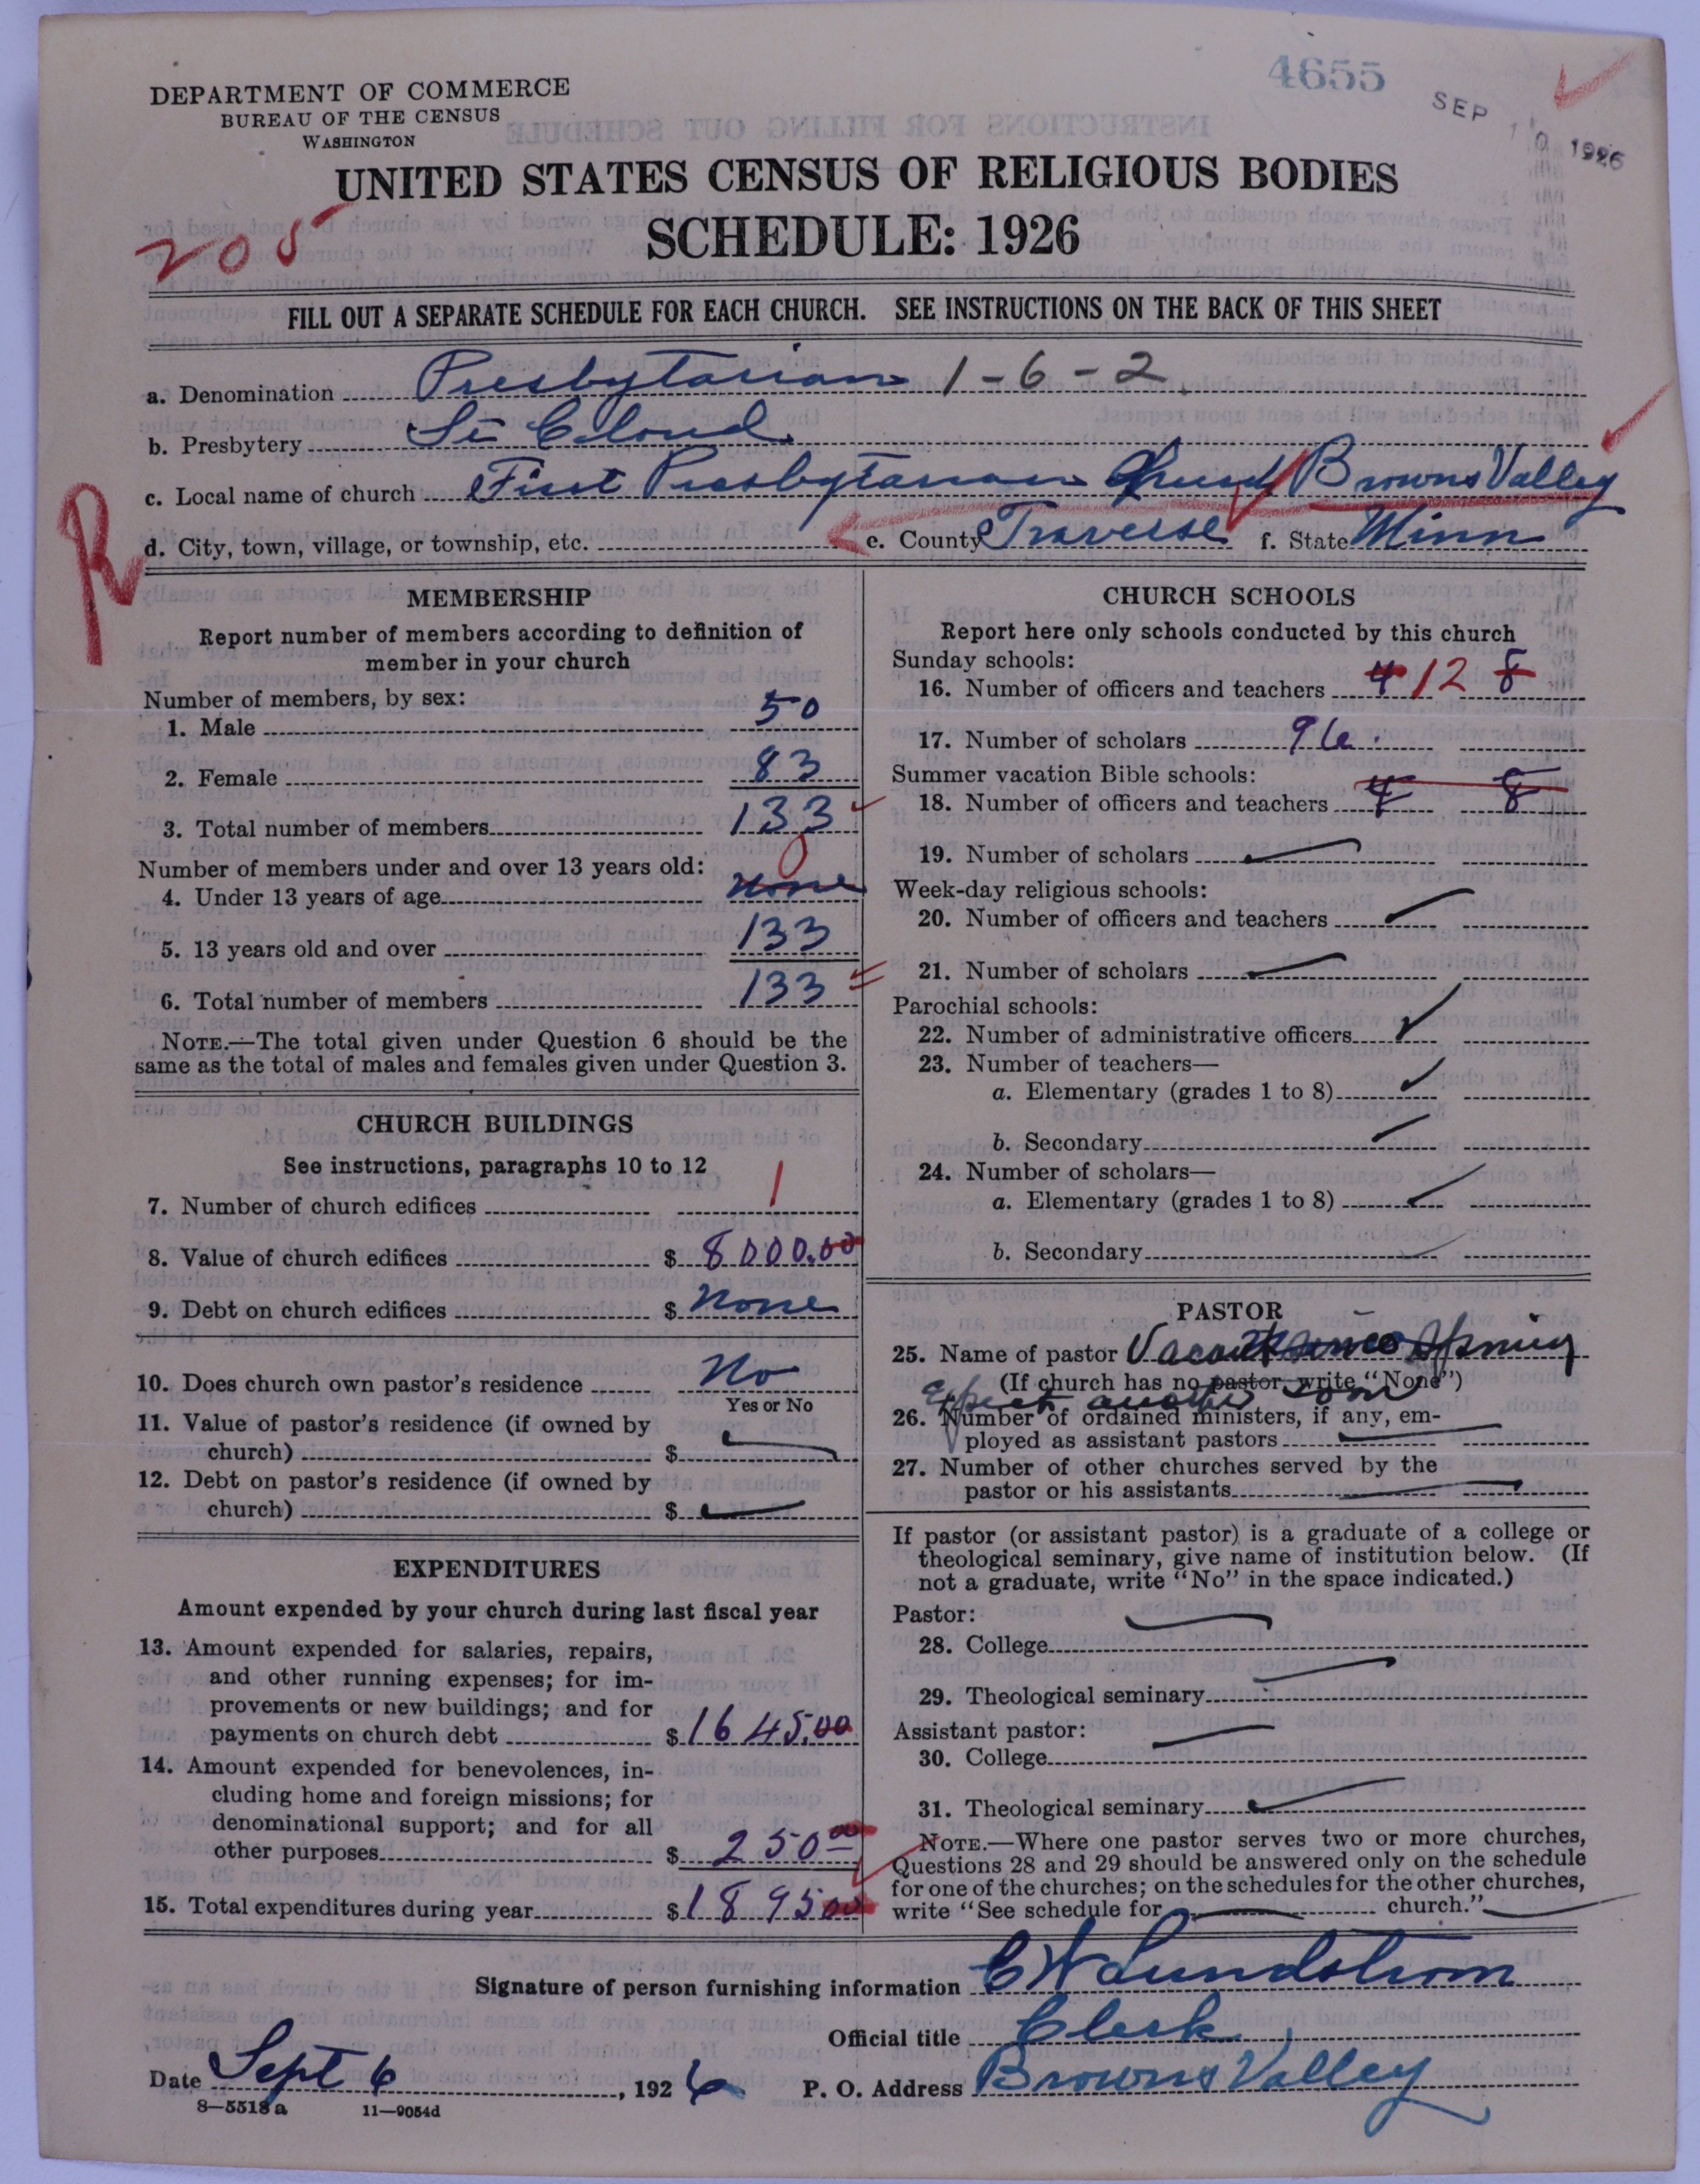 4655
SEP 10 1926
DEPARTMENT OF COMMERCE
BUREAU OF THE CENSUS
WASHINGTON
UNITED STATES CENSUS OF RELIGIOUS BODIES
SCHEDULE: 1926
205
FILL OUT A SEPARATE SCHEDULE FOR EACH CHURCH. SEE INSTRUCTIONS ON THE BACK OF THIS SHEET
a. Denomination Presbytarian 1-6-2
b. Presbytery St Cloud
c. Local name of church First Presbytarian Church Browns Valley
R
d. City, town, village, or township, etc. e. County Traverse f. State Minn
MEMBERSHIP
Report number of members according to definition of
member in your church
Number of members, by sex:
1. Male 50
2. Female 83
3. Total number of members 133
Number of members under and over 13 years old: 0
4. Under 13 years of age none
5. 13 years old and over 133
6. Total number of members 133
NOTE.—The total given under Question 6 should be the
same as the total of males and females given under Question 3.
CHURCH BUILDINGS
See instructions, paragraphs 10 to 12
7. Number of church edifices 1
8. Value of church edifices $ 8000.00
9. Debt on church edifices $ none
10. Does church own pastor's residence No
Yes or No
11. Value of pastor's residence (if owned by
church) $
12. Debt on pastor's residence (if owned by
church) $
EXPENDITURES
Amount expended by your church during last fiscal year
13. Amount expended for salaries, repairs,
and other running expenses; for im-
provements or new buildings; and for
payments on church debt $ 1645.00
14. Amount expended for benevolences, in-
cluding home and foreign missions; for
denominational support; and for all
other purposes $ 250 00
15. Total expenditures during year $ 1895 00
CHURCH SCHOOLS
Report here only schools conducted by this church
Sunday schools:
16. Number of officers and teachers 4 12 8
17. Number of scholars 96.
Summer vacation Bible schools:
18. Number of officers and teachers 4 8
19. Number of scholars
Week-day religious schools:
20. Number of officers and teachers
21. Number of scholars
Parochial schools:
22. Number of administrative officers
23. Number of teachers—
a. Elementary (grades 1 to 8)
b. Secondary
24. Number of scholars—
a. Elementary (grades 1 to 8)
b. Secondary
PASTOR
25. Name of pastor Vacant since Spring
(If church has no pastor, write "None")
Expect another soon
26. Number of ordained ministers, if any, em-
ployed as assistant pastors
27. Number of other churches served by the
pastor or his assistants
If pastor (or assistant pastor) is a graduate of a college or
theological seminary, give name of institution below. (If
not a graduate, write "No" in the space indicated.)
Pastor:
28. College
29. Theological seminary
Assistant pastor:
30. College
31. Theological seminary
NOTE.—Where one pastor serves two or more churches,
Questions 28 and 29 should be answered only on the schedule
for one of the churches; on the schedules for the other churches,
write "See schedule for church."
Signature of person furnishing information C W Lundstrom
Official title Clerk
Date Sept 6, 1926 P. O. Address Browns Valley
8—5518 a 11—9054d